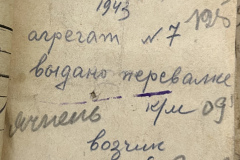 1943
125
агрегат № 7
выдано перевалке
Ячмень к/м 09
возчик